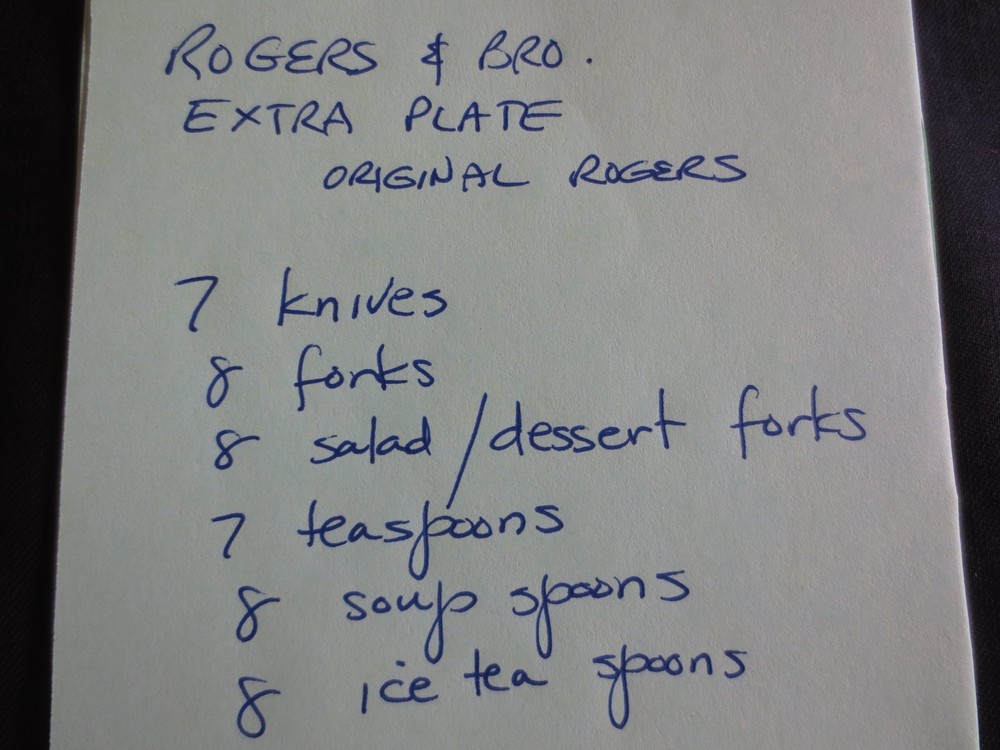 ROGERS & BRO.
EXTRA PLATE
ORIGINAL ROGERS
7 knives
8 forks
8 salad/dessert forks
7 teaspoons
8 soup spoons
8 ice tea spoons